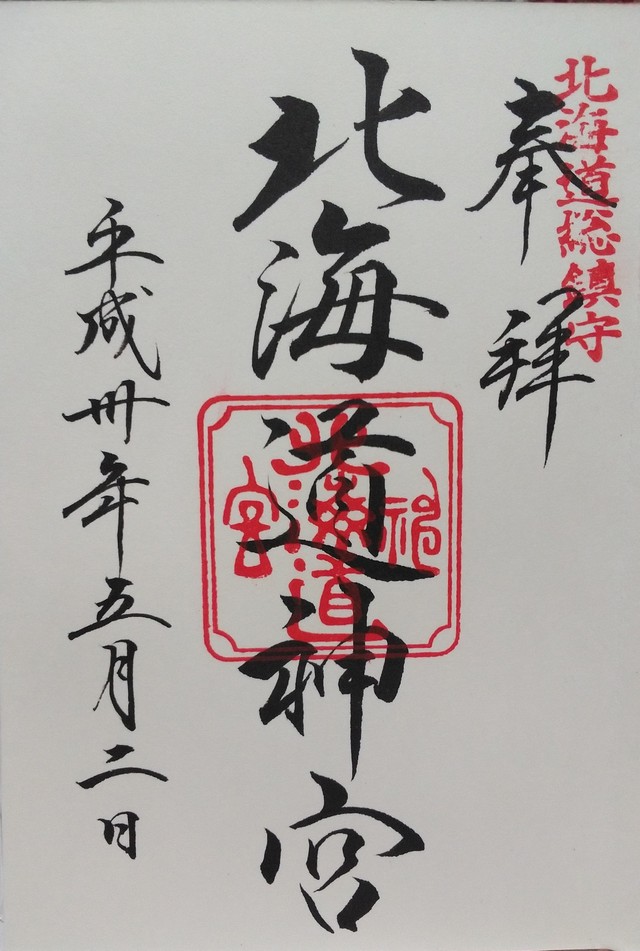 北海道総鎮守
奉拝
北海道神宮
北海道神宮
平成卅年五月二日